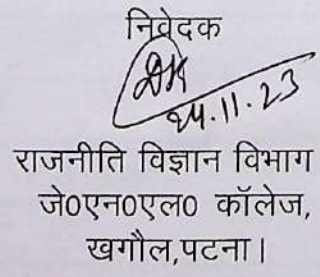 निवेदक
24.11.23
राजनीति विज्ञान विभाग
जे०एन०एल० कॉलेज,
खगौल,पटना।